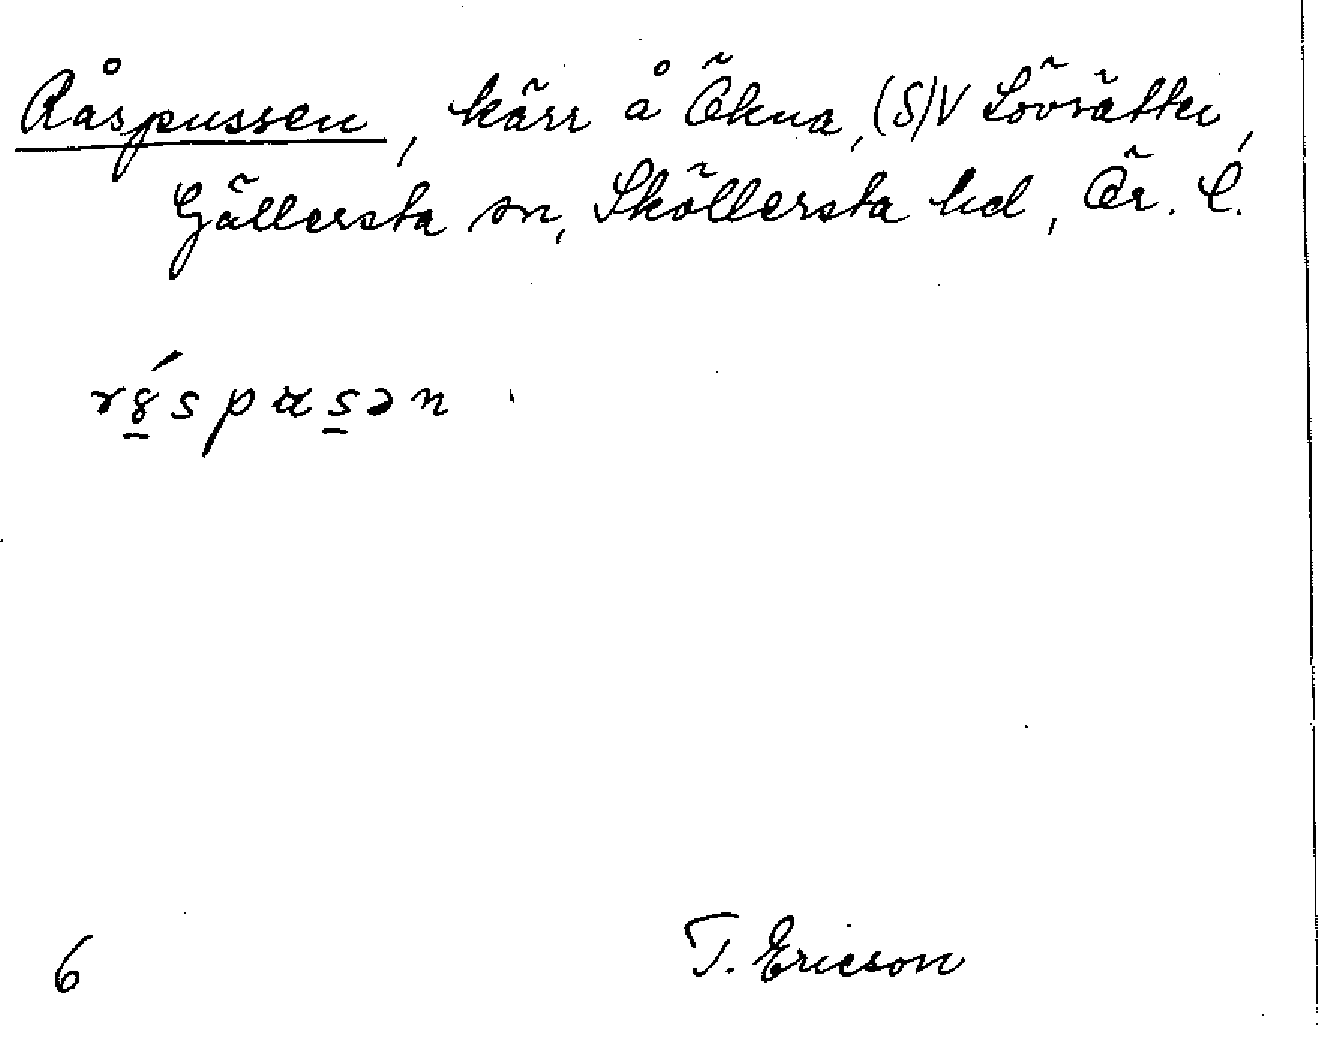 Råspussen, kärr å Ökna, (S)V Lövsätter,
Gällersta sn, Sköllersta hd, Ör. l.
rȣ́spɯsən
6 T. Ericson